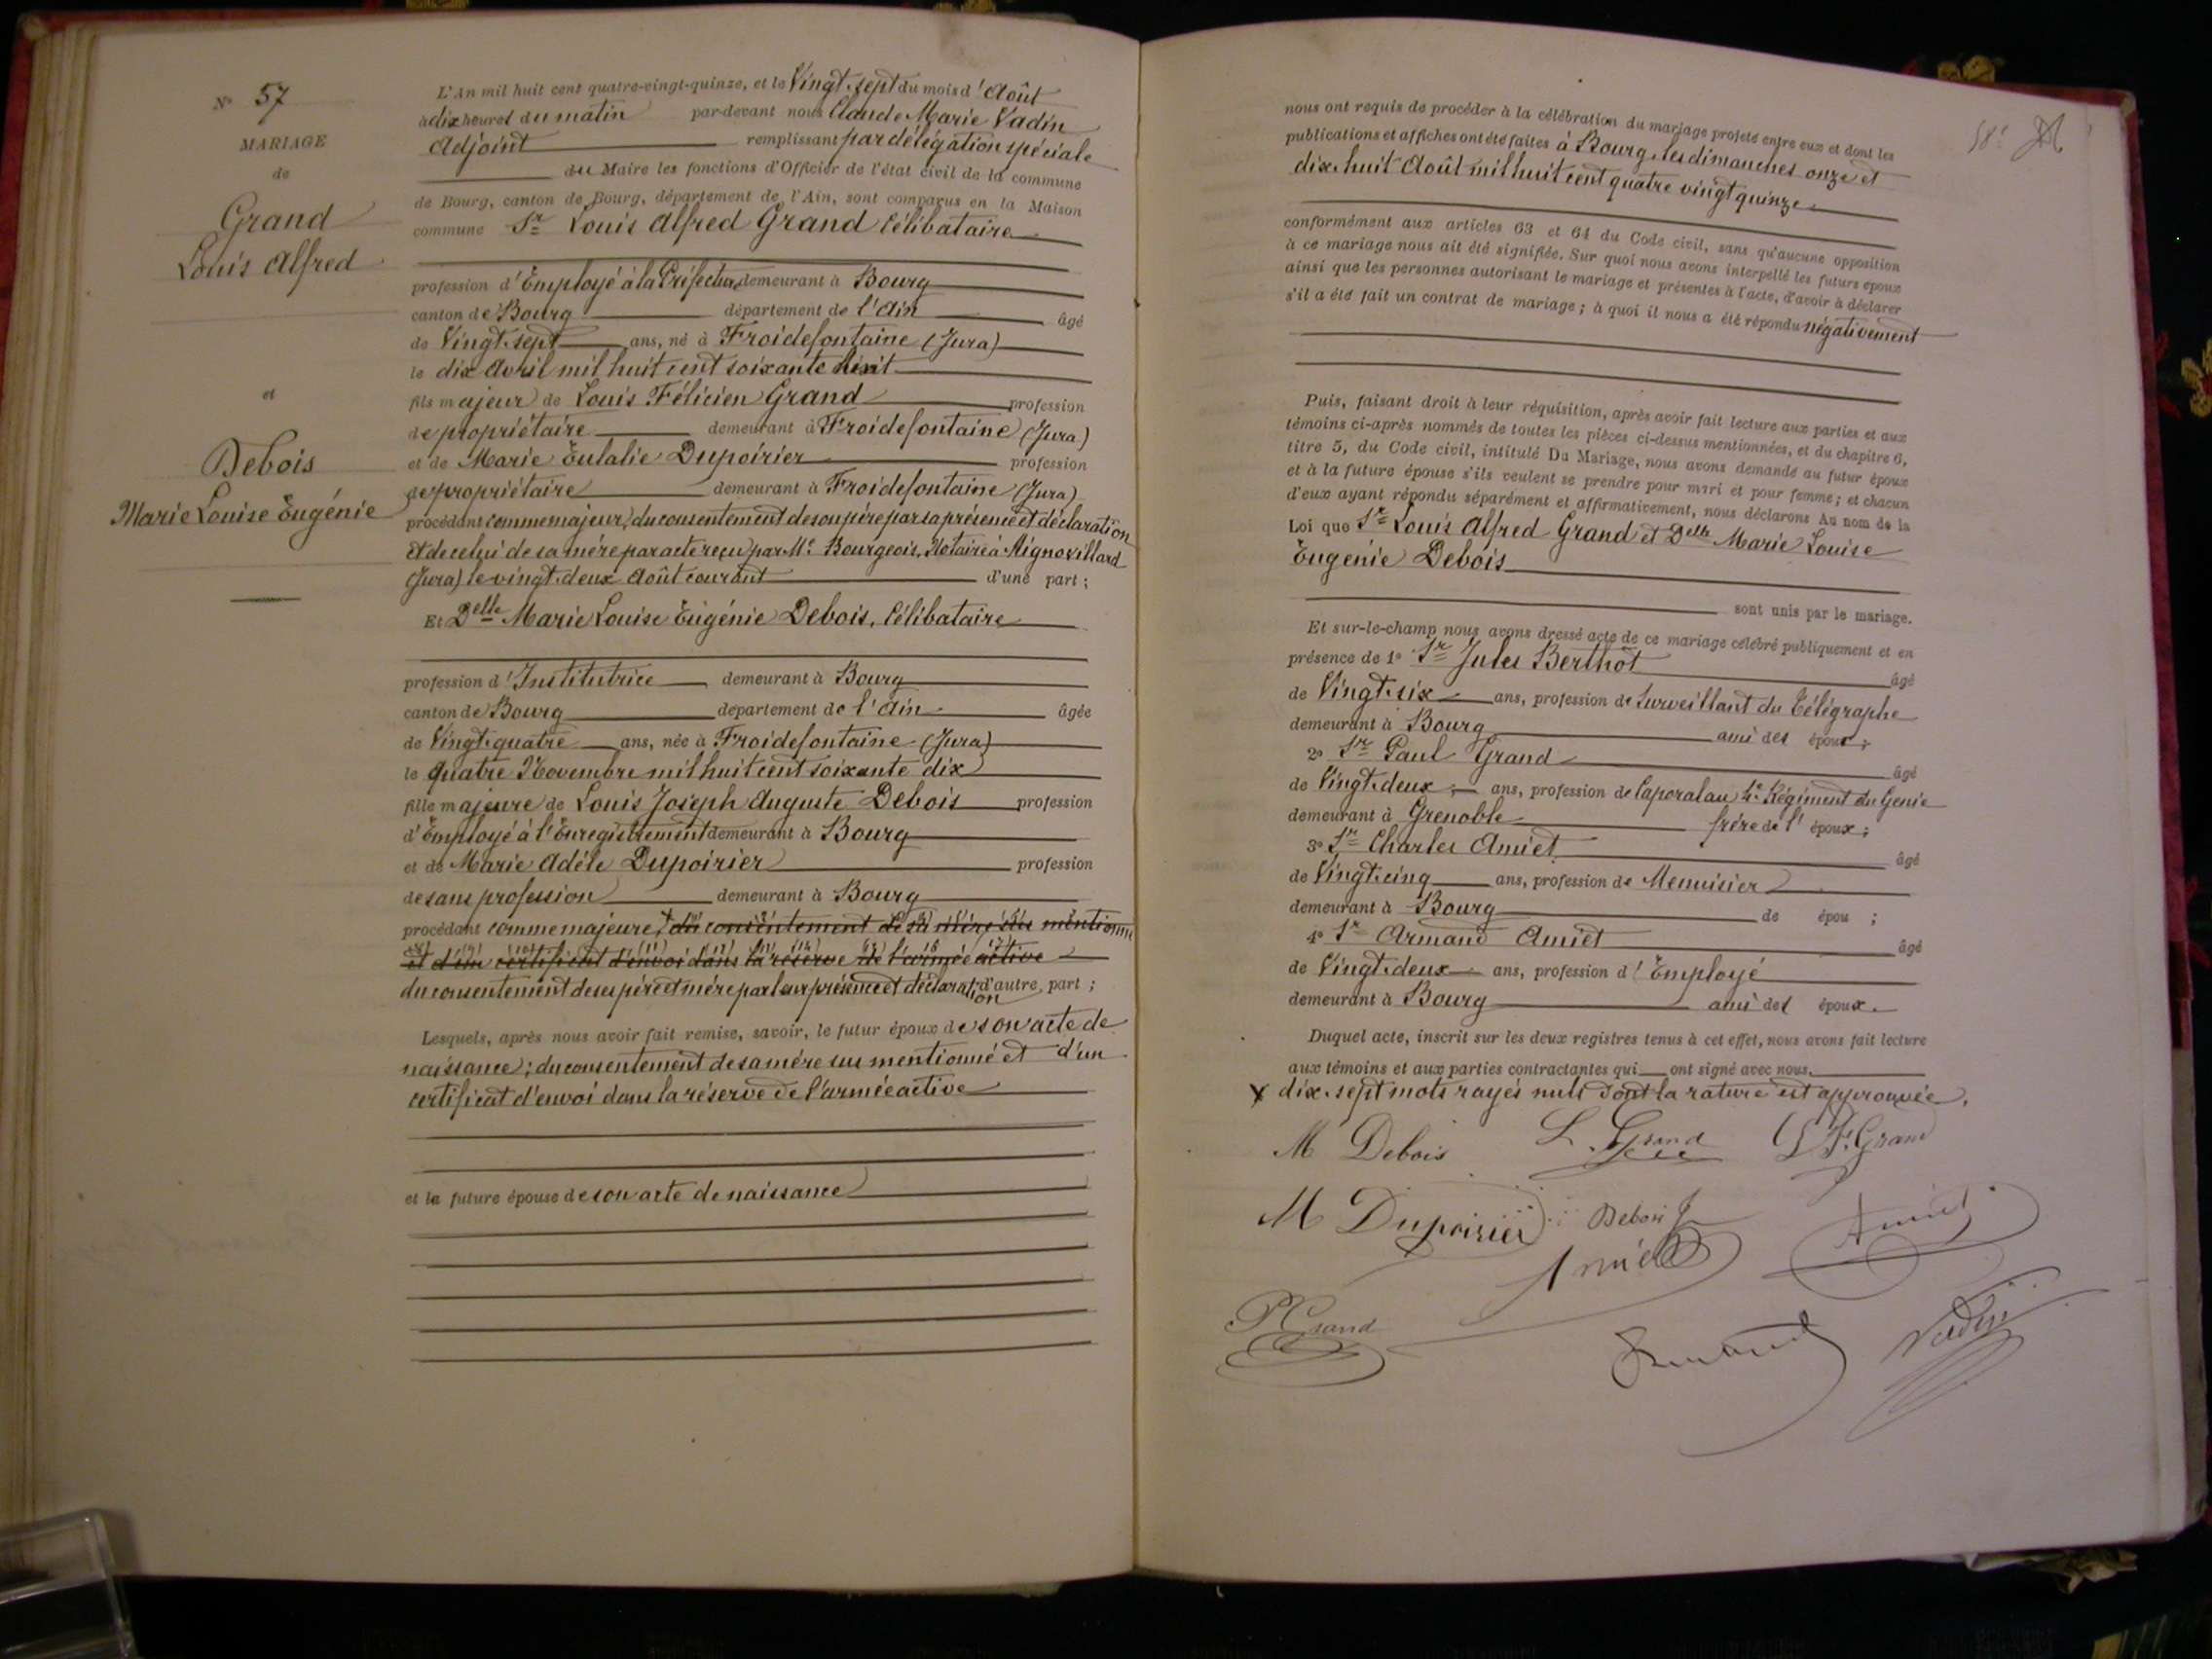 N° 57
MARIAGE
de
Grand
Louis Alfred
et
Debois
Marie Louise Eugénie
L'An mil huit cent quatre-vingt-quinze, et le Vingt-sept du mois d'Août
à dix heures du matin par-devant nous Claude Marie Vadin
Adjoint remplissant par délégation spéciale
du Maire les fonctions d'Officier de l'état civil de la commune
de Bourg, canton de Bourg, département de l'Ain, sont comparus en la Maison
commune Sr Louis Alfred Grand Célibataire
profession d'Employé à la Préfecture demeurant à Bourg
canton de Bourg département de l'Ain âgé
de Vingt-sept ans, né à Froidefontaine (Jura)
le dix Avril mil huit cent soixante huit
fils majeur de Louis Félicien Grand profession
de propriétaire demeurant à Froidefontaine (Jura)
et de Marie Eulalie Dupoirier profession
de propriétaire demeurant à Froidefontaine (Jura)
procédant comme majeur, du consentement de son père par sa présence et déclaration
et de celui de sa mère par acte reçu par Me Bourgeois, Notaire à Mignovillard
(Jura) le vingt-deux Août courant d'une part ;
Et Delle Marie Louise Eugénie Debois, Célibataire
profession d'Institutrice demeurant à Bourg
canton de Bourg département de l'Ain âgée
de Vingt-quatre ans, née à Froidefontaine (Jura)
le quatre Novembre mil huit cent soixante dix
fille majeure de Louis Joseph Auguste Debois profession
d'Employé à l'Enregistrement demeurant à Bourg
et de Marie Adèle Dupoirier profession
de sans profession demeurant à Bourg
procédant comme majeure, du consentement de sa mère sus mentionné
et d'un certificat d'envoi dans la réserve de l'armée active
du consentement de ses père et mère par leur présence et déclaration d'autre part ;
Lesquels, après nous avoir fait remise, savoir, le futur époux de son acte de
naissance ; du consentement de sa mère sus mentionné et d'un
certificat d'envoi dans la réserve de l'armée active
et la future épouse de son acte de naissance
58e
nous ont requis de procéder à la célébration du mariage projeté entre eux et dont les
publications et affiches ont été faites à Bourg, les dimanches onze et
dix-huit Août mil huit cent quatre vingt quinze
conformément aux articles 63 et 64 du Code civil, sans qu'aucune opposition
à ce mariage nous ait été signifiée. Sur quoi nous avons interpellé les futurs époux
ainsi que les personnes autorisant le mariage et présentes à l'acte, d'avoir à déclarer
s'il a été fait un contrat de mariage ; à quoi il nous a été répondu négativement
Puis, faisant droit à leur réquisition, après avoir fait lecture aux parties et aux
témoins ci-après nommés de toutes les pièces ci-dessus mentionnées, et du chapitre 6,
titre 5, du Code civil, intitulé Du Mariage, nous avons demandé au futur époux
et à la future épouse s'ils veulent se prendre pour mari et pour femme ; et chacun
d'eux ayant répondu séparément et affirmativement, nous déclarons Au nom de la
Loi que Sr Louis Alfred Grand et Delle Marie Louise
Eugénie Debois
sont unis par le mariage.
Et sur-le-champ nous avons dressé acte de ce mariage célébré publiquement et en
présence de 1° Sr Jules Berthot âgé
de Vingt-six ans, profession de Surveillant du Télégraphe
demeurant à Bourg ami des époux ;
2° Sr Paul Grand âgé
de Vingt-deux ans, profession de Caporal au 4e Régiment du Génie
demeurant à Grenoble frère de l'époux ;
3° Sr Charles Amiet âgé
de Vingt-cinq ans, profession de Menuisier
demeurant à Bourg de épou ;
4° Sr Armand Amiet âgé
de Vingt-deux ans, profession d'Employé
demeurant à Bourg ami des époux.
Duquel acte, inscrit sur les deux registres tenus à cet effet, nous avons fait lecture
aux témoins et aux parties contractantes qui ont signé avec nous.
X dix-sept mots rayés nuls dont la rature est approuvée.
M Debois L. Grand L F. Grand
M Dupoirier Debois
Amiet Amiet
P Grand
Vadin